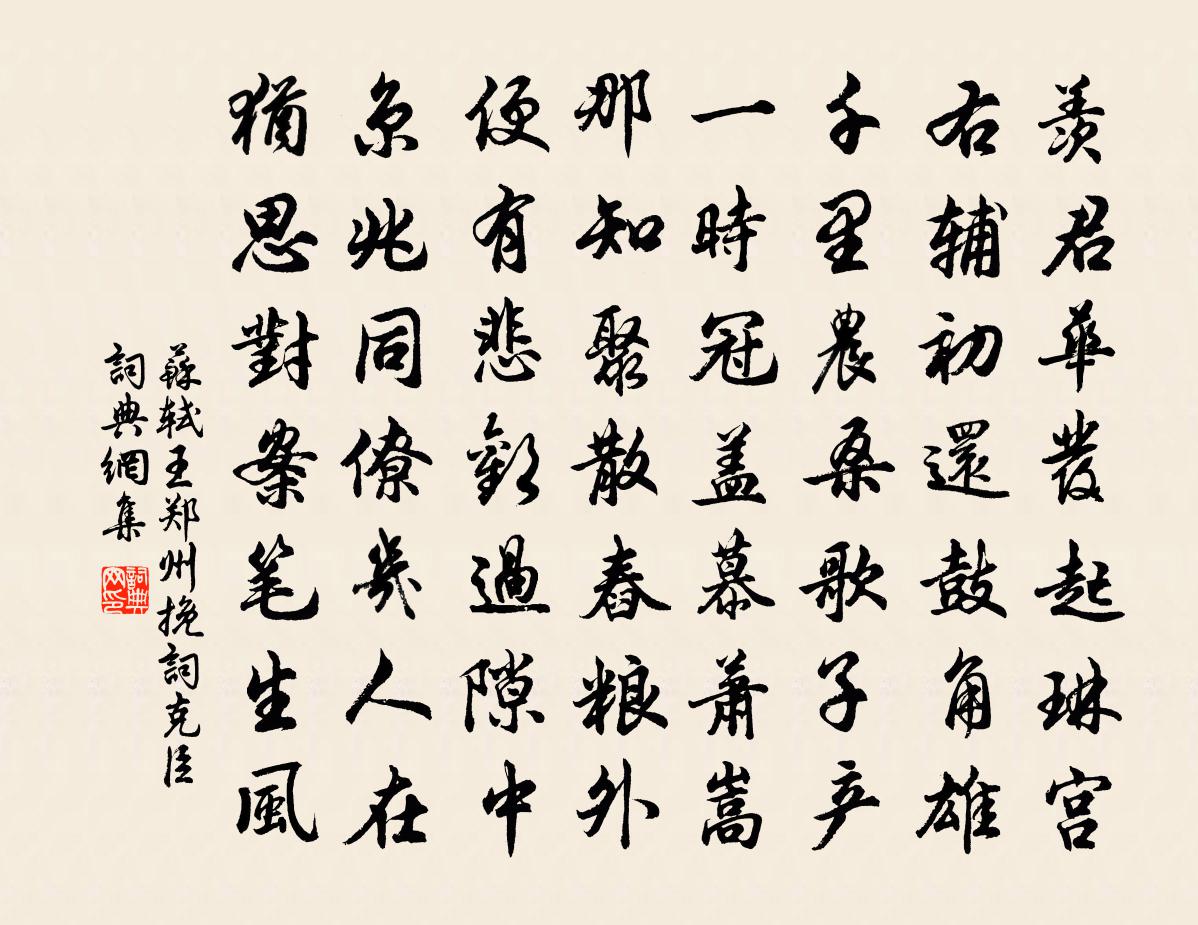 羨君華發起琳宮
右辅初還鼓角雄
千里農桑歌子产
一時冠盖慕蕭嵩
那知聚散春粮外
便有悲歡過隙中
京兆同僚幾人在
猶思對案笔生風
蘇轼王郑州挽詞克臣
詞典網集
詞典